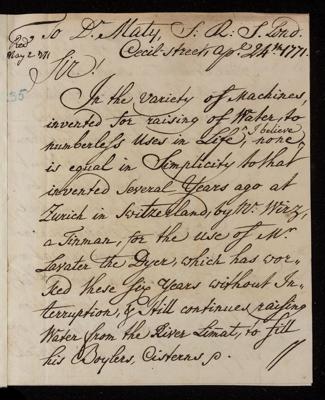 To Dr. Maty, S: R: S. Lond.
Recd.
May 2. 71
Cecil-street, Apl. 24th. 1771.
Sir.
In the Variety of Machines,
invented for raising of Water, to
numberless Uses in Life, ^ I believe none
is equal in Simplicity to that
invented Several Years ago at
Zurich in Switzerland, by Mr. Wirz,
a Tinman, for the Use of Mr.
Lavater the Dyer, which has wor-
ked these six Years without In-
terruption, & Still continues raising
Water from the River Limat, to fill
his Boylers, Cisterns